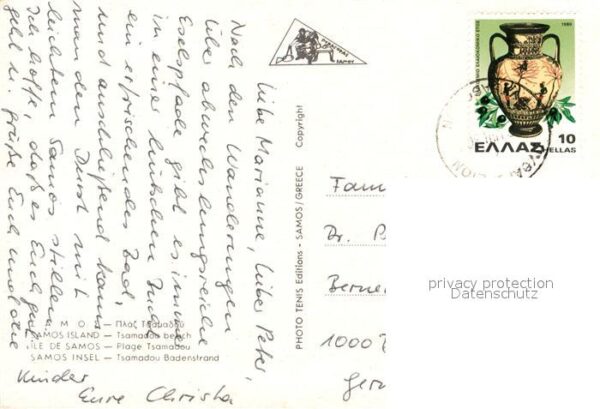 Liebe Marianne, lieber Peter,
Nach den Wanderungen
über abwechslungsreiche
Eselspfade gibt es immer
in einer hübschen Bucht
ein erfrischendes Bad,
und anschließend kann
man den Durst mit
leichtem Samos stillen.
Ich hoffe, daß es Euch gut
geht u. grüße Euch und die
Kinder
Eure Christa
ΣΑΜΟΣ — Πλαζ Τσαμαδού
SAMOS ISLAND — Tsamadou beach
ÎLE DE SAMOS — Plage Tsamadou
SAMOS INSEL — Tsamadou Badenstrand
PHOTO TENIS Editions - SAMOS/GREECE Copyright
1980
ΕΛΛΑΣ 10
HELLAS
Fam
Dr.
Berner
1000
Ger
privacy protection
Datenschutz